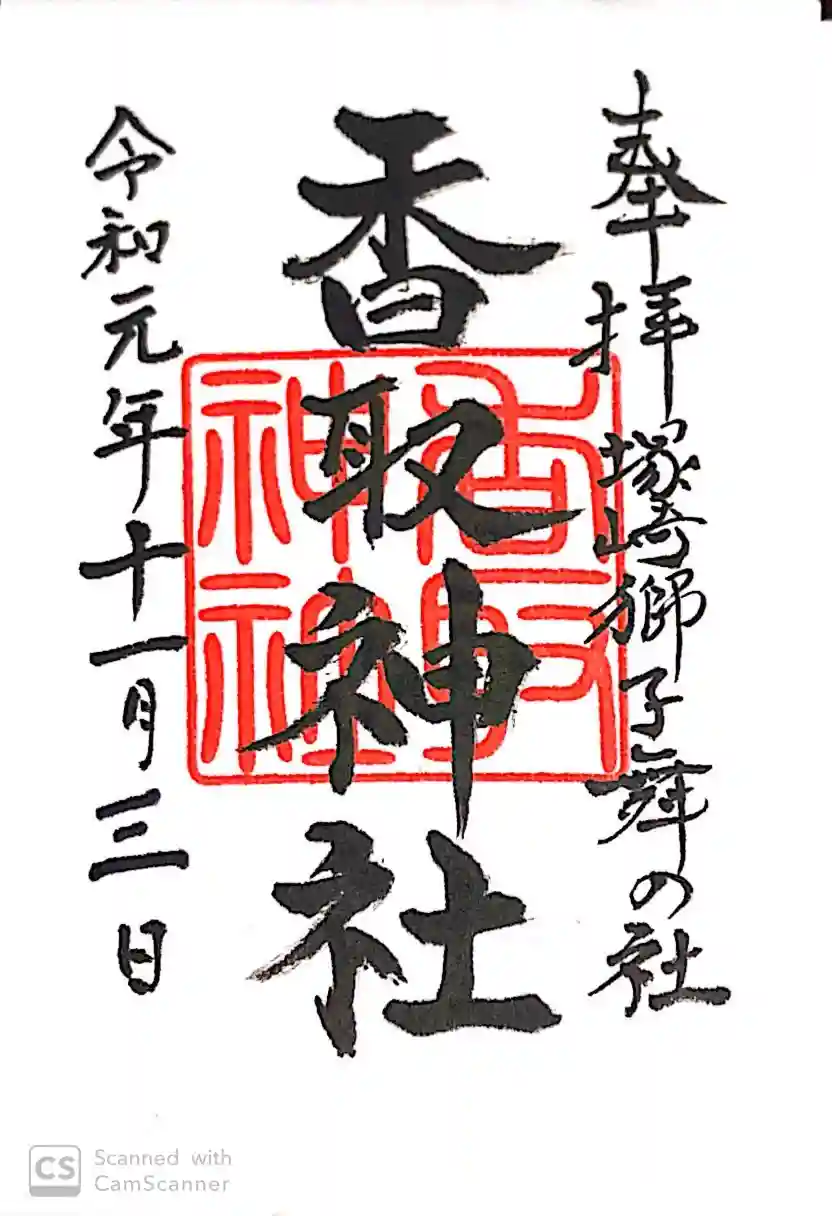 奉拝 塚崎獅子舞の社
香取神社
令和元年十一月三日
香取神社
CS Scanned with
CamScanner